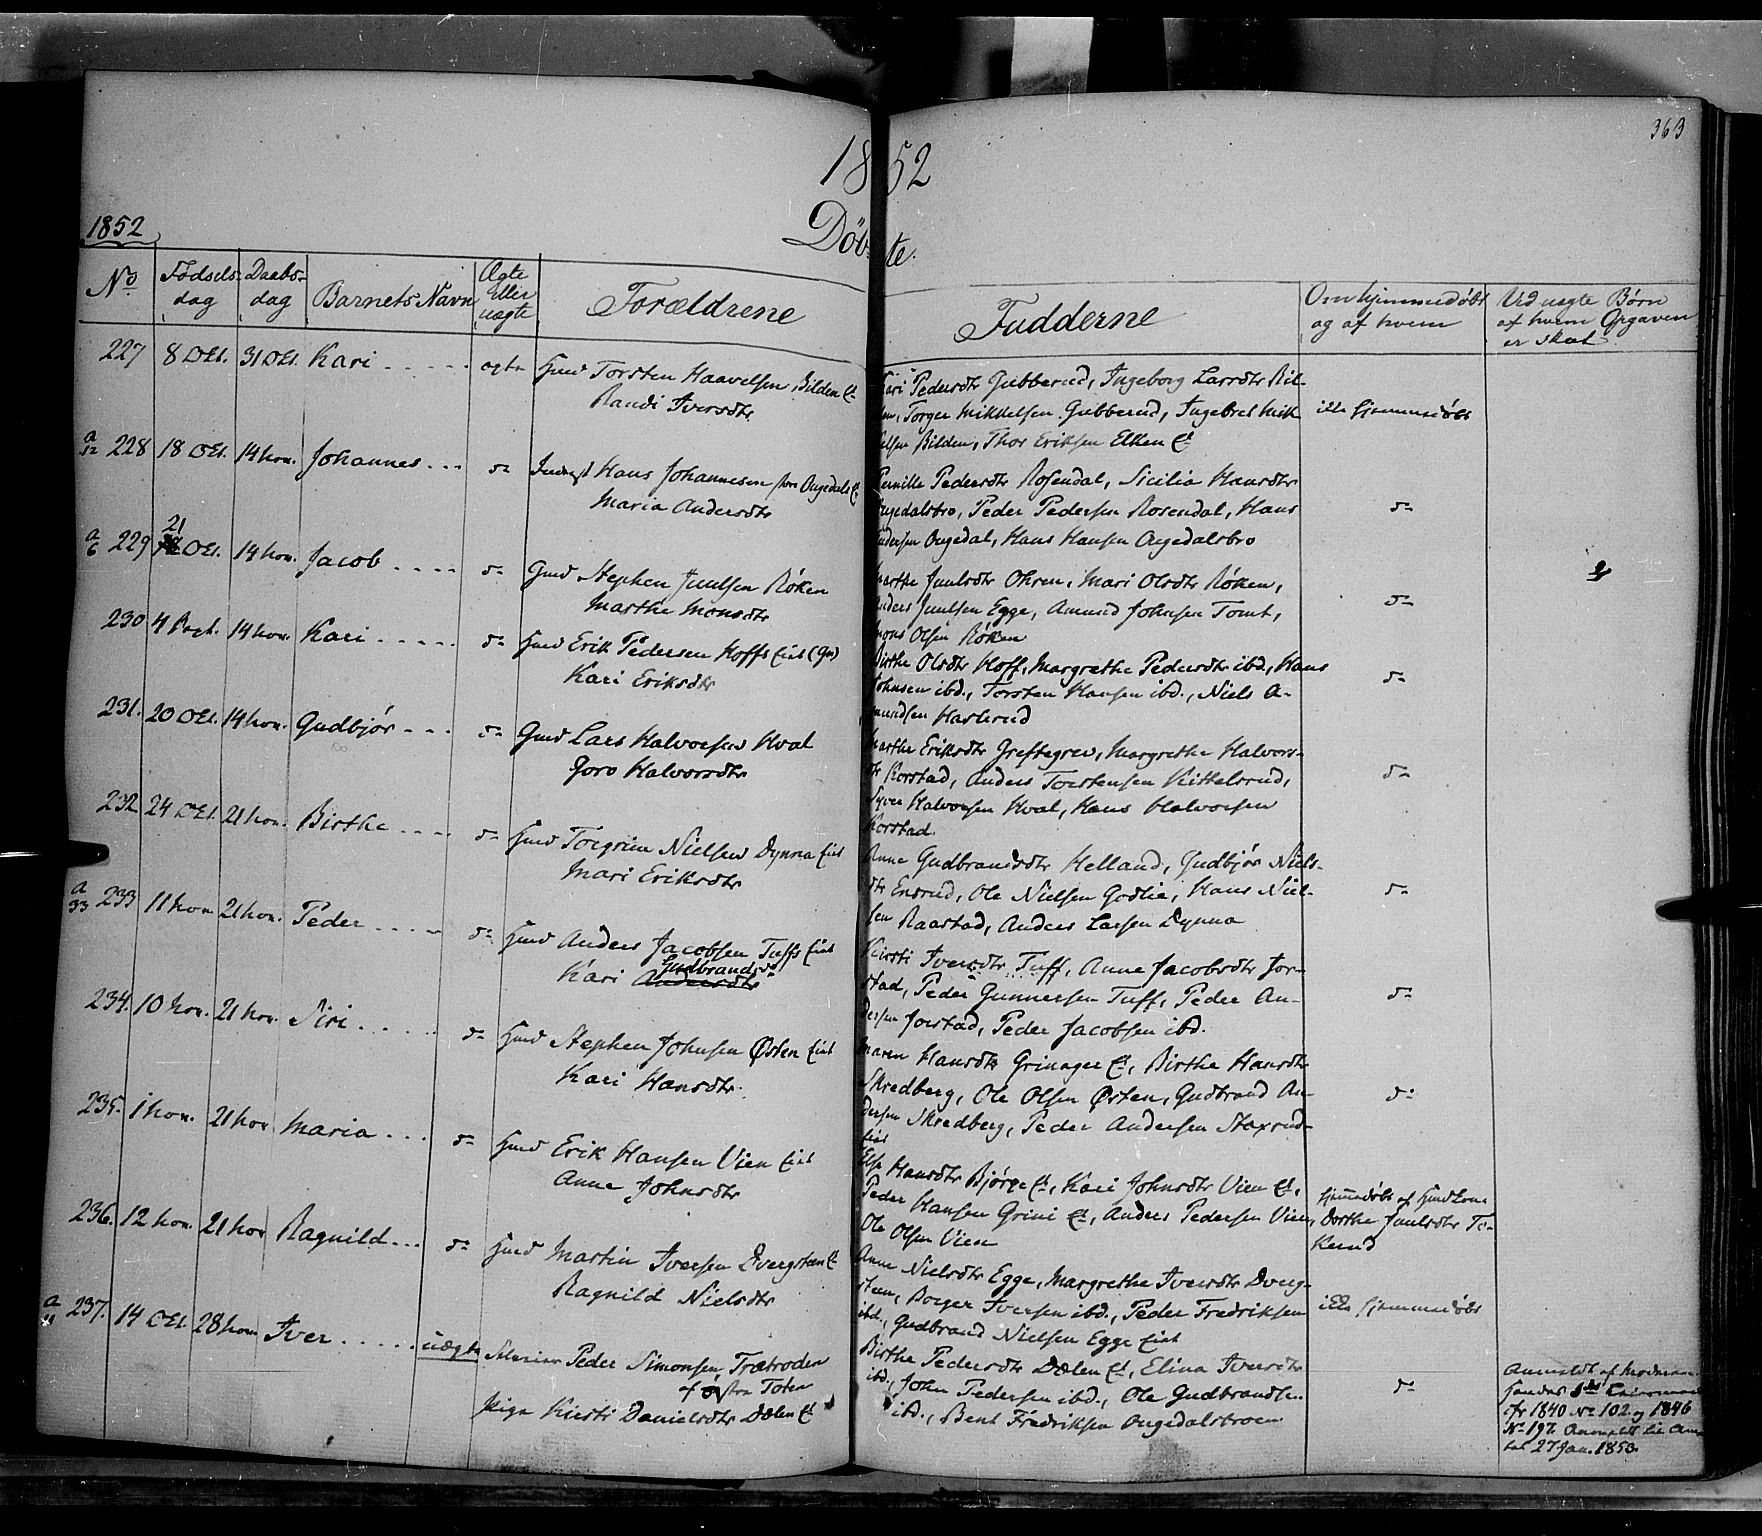 363
1852
1852
Döbte.
No
Fødsels-
dag
Daabs-
dag
Barnets Navn
Ægte
eller
uægte
Forældrene
Fadderne
Om hjemmedøbt
og af hvem
Ved uægte Børn
af hvem Opgaven
er skeet
227 8 Oct. 31 Oct. Kari ægte Hmd Torsten Haavelsen Bilden E.
Randi Iversdtr
Kari Pedersdtr Gubberud, Ingeborg Larsdtr Bil-
den, Torger Mikkelsen Gubberud, Ingebret Mik-
kelsen Bilden, Thor Eriksen Elken E.
ikke hjemmedøbt
228 18 Oct. 14 Nov. Johannes do Hans Johannesen Augedals E.
Maria Andersdtr
Pernille Pedersdtr Rosendal, Sicilia Hansdtr
Augedalsbro, Peder Pedersen Rosendal, Hans
Andersen Augedal, Hans Hansen Augedalsbro
do
a
6 229 21 Oct. 14 Nov. Jacob do Gmd Stephen Juulsen Røken
Marthe Monsdtr
Marthe Juulsdtr Ohren, Mari Olsdtr Røken,
Anders Juulsen Egge, Amund Johnsen Tomt,
Mons Olsen Røken
do
230 4 Sept. 14 Nov. Kari do Hmd Erik Pedersen Hoffs Eie (Gr)
Kari Eriksdtr
Birthe Olsdtr Hoff, Margrethe Pedersdtr ibd., Hans
Johnsen ibd., Torsten Hansen ibd., Niels A-
mundsen Haslerud
do
231. 20 Oct. 14 Nov. Gudbjør do Gmd Lars Halvorsen Hval
Goro Halvorsdtr
Marthe Eriksdtr Greftegrev, Margrethe Halvors-
dtr Korstad, Anders Torstensen Kittelsrud,
Syver Halvorsen Hval, Hans Halvorsen
Korstad
do
232 24 Oct. 21 Nov. Birthe do Hmd Torgrim Nielsen Dynna Eie
Mari Eriksdtr
Anne Gudbrandsdtr Helland, Gudbjør Niels-
dtr Ensrud, Ole Nielsen Godlie, Hans Niel-
sen Raastad, Anders Larsen Dynna
do
a
33 233 11 Nov 21 Nov. Peder do Hmd Anders Jacobsen Tuffs Eie
Kari Gudbrandsdr Andersdtr
Kirsti Iversdtr Tuff, Anne Jacobsdtr Jor-
stad, Peder Gunnersen Tuff, Peder An-
dersen Jorstad, Peder Jacobsen ibd.
do
234. 10 Nov. 21 Nov. Siri do Hmd Stephen Johnsen Østen Eie
Kari Hansdtr.
Maren Hansdtr Grinager E., Birthe Hansdtr
Skredberg, Ole Olsen Østen, Gudbrand An-
dersen Skredberg, Peder Andersen Staxrud-
eie
do
235. 1 Nov. 21 Nov Maria do Hmd Erik Hansen Vien Eie
Anne Johnsdtr
Else Hansdtr Bjørge E., Kari Johnsdtr Vien E.,
Peder Hansen Grini E., Anders Pedersen Vien,
Ole Olsen Vien
hjemmedøbt af Hmdkone
Dorthe Juulsdtr To-
kerud
236. 12 Nov. 21 Nov Ragnild do Hmd Martin Iversen Dvergsten E.
Ragnild Nielsdtr
Anne Nielsdtr Egge, Margrethe Iversdtr Dverg-
steen, Borger Iversen ibd., Peder Fredriksen
ibd., Gudbrand Nielsen Egge Eie
ikke hjemmedøbt
237. 14 Oct. 28 Nov Iver uægte Peder Simonsen, Trætroden
af østre Toten
Pige Kirsti Danielsdtr Dælen E.
Birthe Pedersdtr Dælen E., Elina Iversdtr
ibd., John Pedersen ibd., Ole Gudbrandsen
ibd., Bent Fredriksen Augedalsbroen
do
Anmeldt af Moderen
Hendes 3die
cfr 1840 No 102 og 1846
No 197. Anmeldt til Am-
tet 27 Jan. 1853.